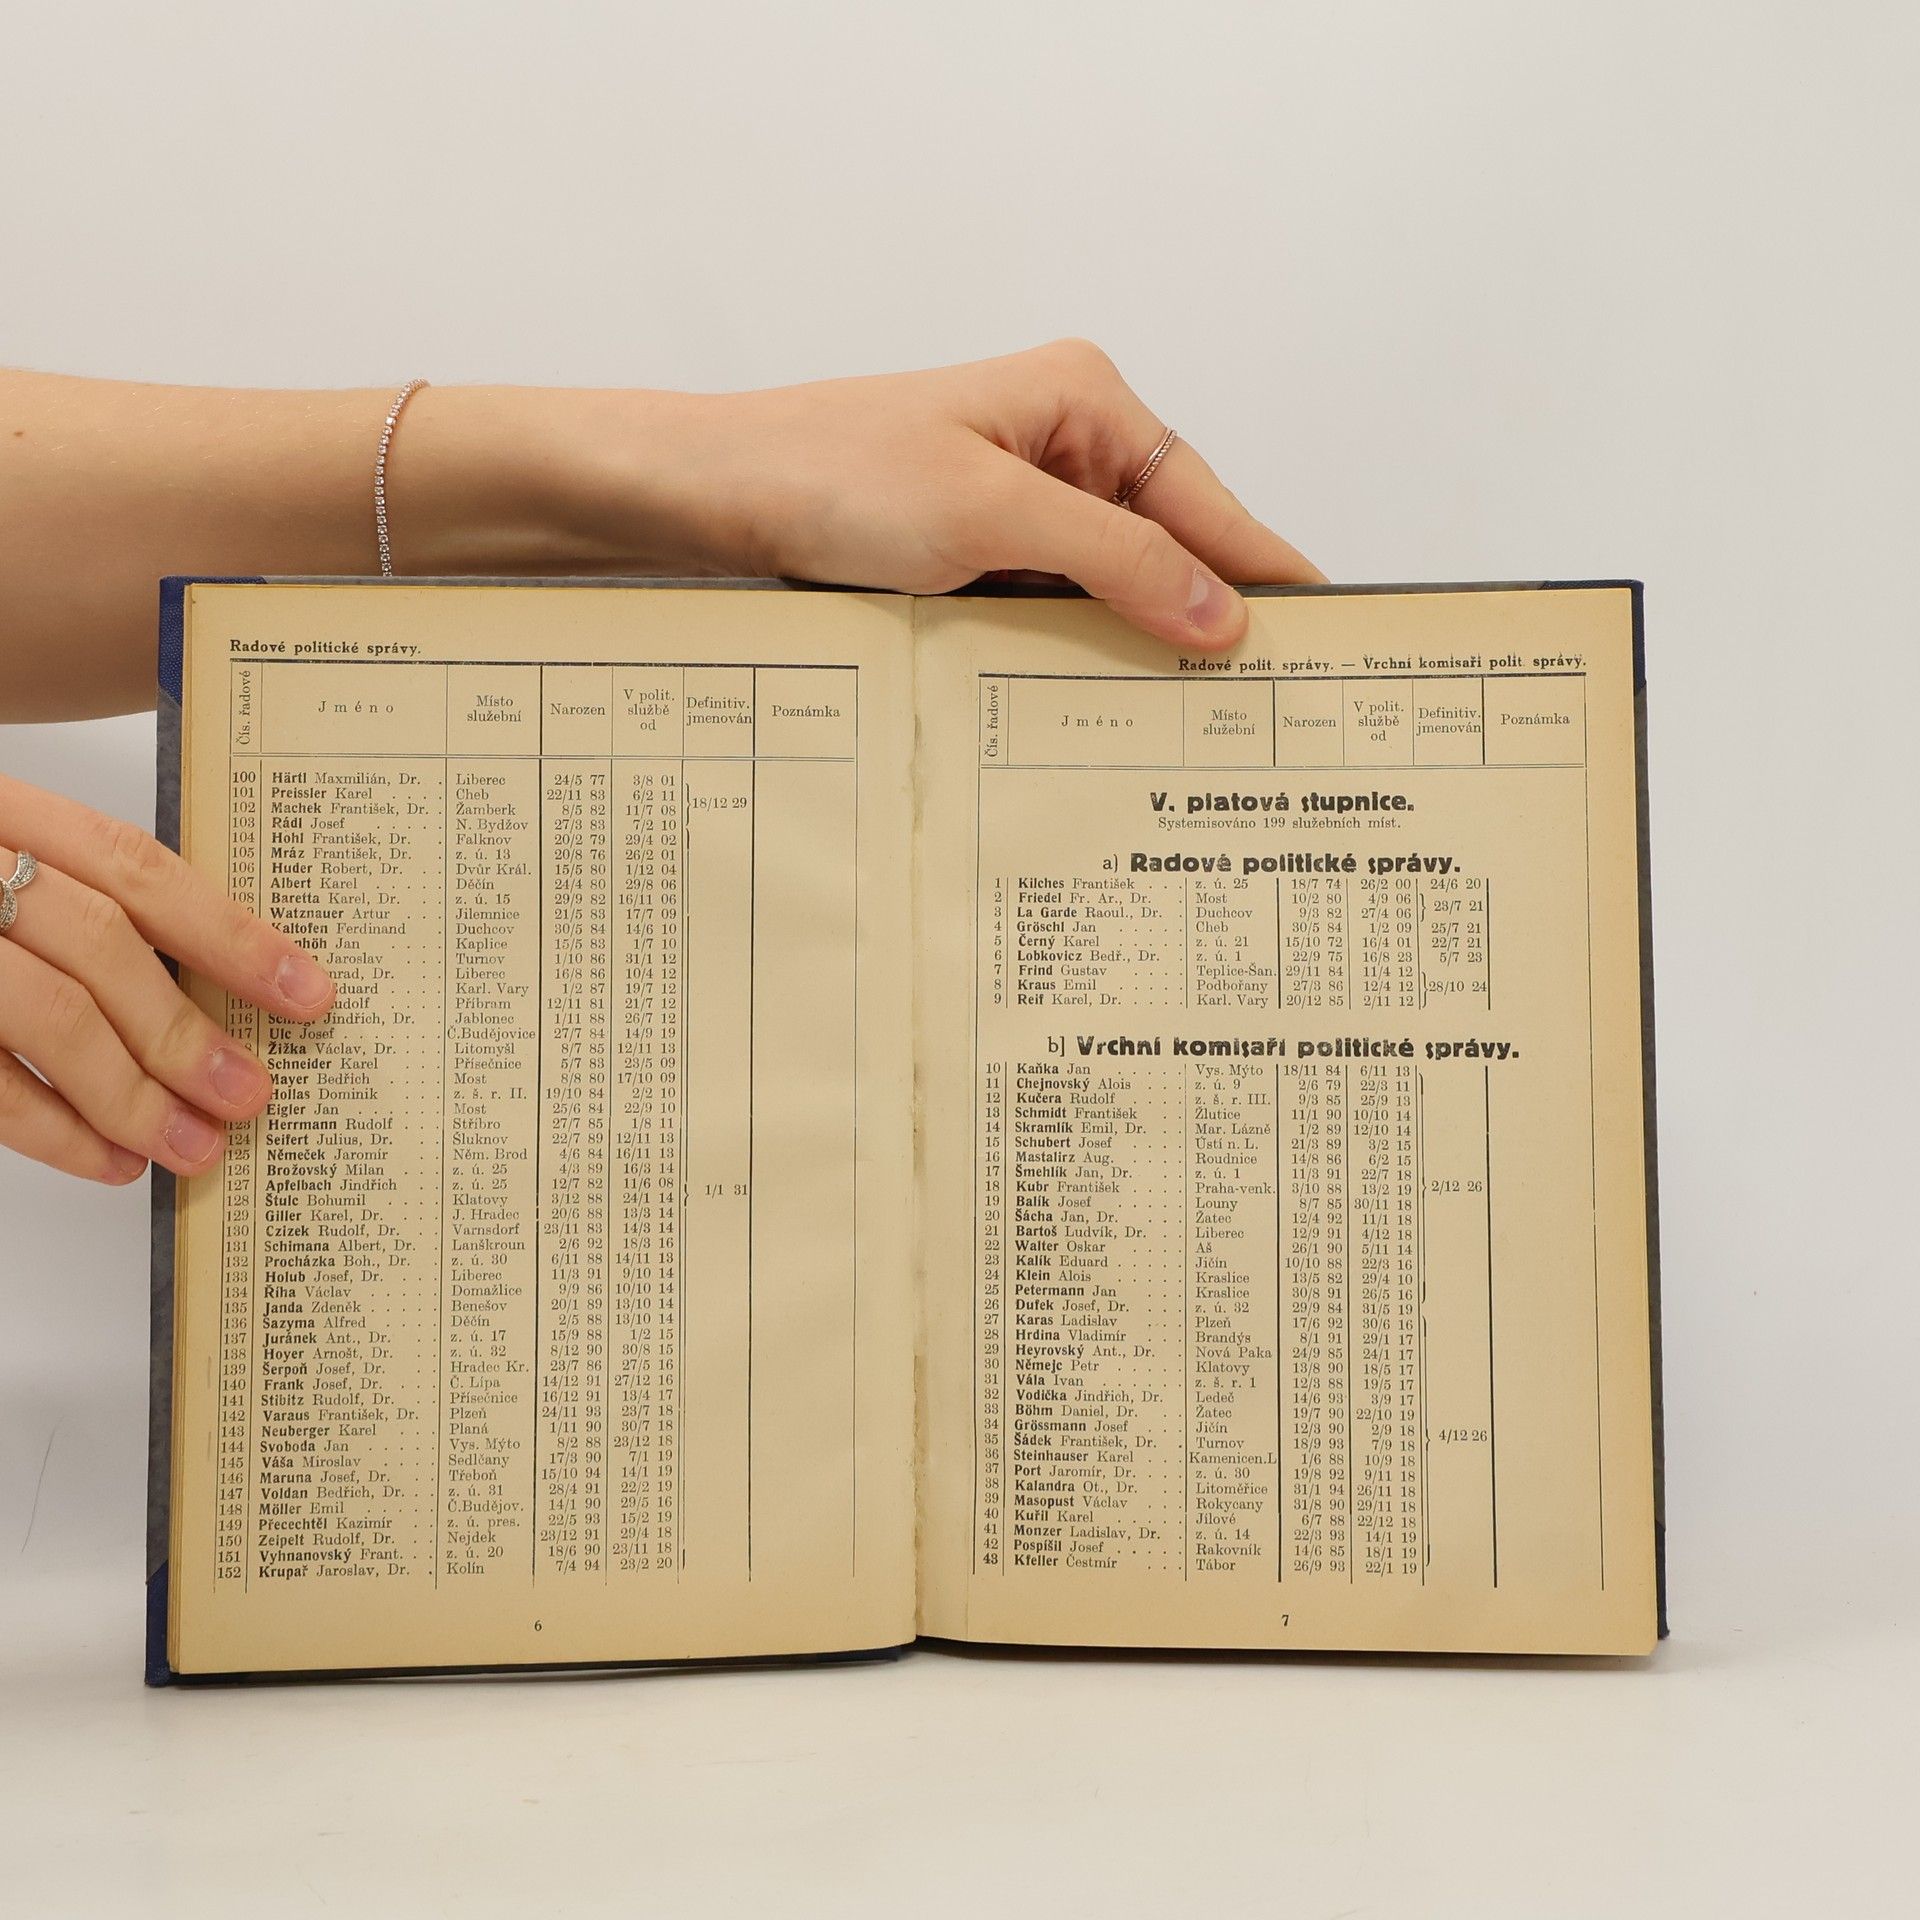 Radové politické správy.
Čís. řadové Jméno Místo služební Narozen V polit. službě od Definitiv. jmenován Poznámka
100 Härtl Maxmilián, Dr. . Liberec 24/5 77 3/8 01
101 Preissler Karel . . . . Cheb 22/11 83 6/2 11
18/12 29
102 Machek František, Dr. . Žamberk 8/5 82 11/7 08
103 Rádl Josef . . . . . N. Bydžov 27/3 83 7/2 10
104 Hohl František, Dr. . Falknov 20/2 79 29/4 02
105 Mráz František, Dr. . z. ú. 13 20/8 76 26/2 01
106 Huder Robert, Dr. . . Dvůr Král. 15/5 80 1/12 04
107 Albert Karel . . . . . Děčín 24/4 80 29/8 06
108 Baretta Karel, Dr. . . z. ú. 15 29/9 82 16/11 06
Watznauer Artur . . . Jilemnice 21/5 83 17/7 09
Kaltofen Ferdinand . Duchcov 30/5 84 14/6 10
Jan . . . . Kaplice 15/5 83 1/7 10
Jaroslav . . . Turnov 1/10 86 31/1 12
Dr. . . Liberec 16/8 86 10/4 12
Eduard . . . . Karl. Vary 1/2 87 19/7 12
. . . . Příbram 12/11 81 21/7 12
116 Jindřich, Dr. . Jablonec 1/11 88 26/7 12
117 Ulc Josef . . . . . . . Č.Budějovice 27/7 84 14/9 19
Žižka Václav, Dr. . . . Litomyšl 8/7 85 12/11 13
Schneider Karel . . . Přísečnice 5/7 83 23/5 09
Mayer Bedřich . . . . Most 8/8 80 17/10 09
Hollas Dominik . . . z. š. r. II. 19/10 84 2/2 10
Eigler Jan . . . . . . Most 25/6 84 22/9 10
123 Herrmann Rudolf . . . Stříbro 27/7 85 1/8 11
124 Seifert Julius, Dr. . . Šluknov 22/7 89 12/11 13
125 Němeček Jaromír . . Něm. Brod 4/6 84 16/11 13
126 Brožovský Milan . . z. ú. 25 4/3 89 16/3 14
127 Apfelbach Jindřich . . z. ú. 25 12/7 82 11/6 08
1/1 31
128 Štulc Bohumil . . . . Klatovy 3/12 88 24/1 14
129 Giller Karel, Dr. . . . J. Hradec 20/6 88 13/3 14
130 Czizek Rudolf, Dr. . . Varnsdorf 23/11 83 14/3 14
131 Schimana Albert, Dr. . Lanškroun 2/6 92 18/3 16
132 Procházka Boh., Dr. . z. ú. 30 6/11 88 14/11 13
133 Holub Josef, Dr. . . . Liberec 11/3 91 9/10 14
134 Říha Václav . . . . . Domažlice 9/9 86 10/10 14
135 Janda Zdeněk . . . . . Benešov 20/1 89 13/10 14
136 Sazyma Alfred . . . . Děčín 2/5 88 13/10 14
137 Juránek Ant., Dr. . . z. ú. 17 15/9 88 1/2 15
138 Hoyer Arnošt, Dr. . . z. ú. 32 8/12 90 30/8 15
139 Šerpoň Josef, Dr. . . Hradec Kr. 23/7 86 27/5 16
140 Frank Josef, Dr. . . . Č. Lípa 14/12 91 27/12 16
141 Stibitz Rudolf, Dr. . . Přísečnice 16/12 91 13/4 17
142 Varaus František, Dr. Plzeň 24/11 93 23/7 18
143 Neuberger Karel . . . Planá 1/11 90 30/7 18
144 Svoboda Jan . . . . . Vys. Mýto 8/2 88 23/12 18
145 Váša Miroslav . . . . Sedlčany 17/3 90 7/1 19
146 Maruna Josef, Dr. . . Třeboň 15/10 94 14/1 19
147 Voldan Bedřich, Dr. . . z. ú. 31 28/4 91 22/2 19
148 Möller Emil . . . . . Č.Budějov. 14/1 90 29/5 16
149 Přecechtěl Kazimír . . z. ú. pres. 22/5 93 15/2 19
150 Zeipelt Rudolf, Dr. . . Nejdek 23/12 91 29/4 18
151 Vyhnanovský Frant. . . z. ú. 20 18/6 90 23/11 18
152 Krupař Jaroslav, Dr. . Kolín 7/4 94 23/2 20
6
Radové polit. správy. — Vrchní komisaři polit. správy.
Čís. řadové Jméno Místo služební Narozen V polit. službě od Definitiv. jmenován Poznámka
V. platová stupnice.
Systemisováno 199 služebních míst.
a) Radové politické správy.
1 Kilches František . . . z. ú. 25 18/7 74 26/2 00 24/6 20
2 Friedel Fr. Ar., Dr. . Most 10/2 80 4/9 06
23/7 21
3 La Garde Raoul., Dr. . Duchcov 9/3 82 27/4 06
4 Gröschl Jan . . . . . Cheb 30/5 84 1/2 09 25/7 21
5 Černý Karel . . . . . z. ú. 21 15/10 72 16/4 01 22/7 21
6 Lobkovicz Bedř., Dr. . z. ú. 1 22/9 75 16/8 23 5/7 23
7 Frind Gustav . . . . Teplice-Šan. 29/11 84 11/4 12
8 Kraus Emil . . . . . Podbořany 27/3 86 12/4 12 28/10 24
9 Reif Karel, Dr. . . . . Karl. Vary 20/12 85 2/11 12
b] Vrchní komisaři politické správy.
10 Kaňka Jan . . . . . Vys. Mýto 18/11 84 6/11 13
11 Chejnovský Alois . . . z. ú. 9 2/6 79 22/3 11
12 Kučera Rudolf . . . . z. š. r. III. 9/3 85 25/9 13
13 Schmidt František . . Žlutice 11/1 90 10/10 14
14 Skramlík Emil, Dr. . . Mar. Lázně 1/2 89 12/10 14
15 Schubert Josef . . . . Ústí n. L. 21/3 89 3/2 15
16 Mastalirz Aug. . . . . Roudnice 14/8 86 6/2 15
17 Šmehlík Jan, Dr. . . . z. ú. 1 11/3 91 22/7 18
18 Kubr František . . . . Praha-venk. 3/10 88 13/2 19 2/12 26
19 Balík Josef . . . . . Louny 8/7 85 30/11 18
20 Šácha Jan, Dr. . . . . Žatec 12/4 92 11/1 18
21 Bartoš Ludvík, Dr. . . Liberec 12/9 91 4/12 18
22 Walter Oskar . . . . Aš 26/1 90 5/11 14
23 Kalík Eduard . . . . . Jičín 10/10 88 22/3 16
24 Klein Alois . . . . . Kraslice 13/5 82 29/4 10
25 Petermann Jan . . . Kraslice 30/8 91 26/5 16
26 Dufek Josef, Dr. . . . z. ú. 32 29/9 84 31/5 19
27 Karas Ladislav . . . Plzeň 17/6 92 30/6 16
28 Hrdina Vladimír . . . Brandýs 8/1 91 29/1 17
29 Heyrovský Ant., Dr. . Nová Paka 24/9 85 24/1 17
30 Němejc Petr . . . . . Klatovy 13/8 90 18/5 17
31 Vála Ivan . . . . . . z. š. r. 1 12/3 88 19/5 17
32 Vodička Jindřich, Dr. Ledeč 14/6 93 3/9 17
33 Böhm Daniel, Dr. . . Žatec 19/7 90 22/10 19
34 Grössmann Josef . . Jičín 12/3 90 2/9 18
35 Šádek František, Dr. . Turnov 18/9 93 7/9 18 4/12 26
36 Steinhauser Karel . . . Kamenicen.L 1/6 88 10/9 18
37 Port Jaromír, Dr. . . . z. ú. 30 19/8 92 9/11 18
38 Kalandra Ot., Dr. . . Litoměřice 31/1 94 26/11 18
39 Masopust Václav . . . Rokycany 31/8 90 29/11 18
40 Kuřil Karel . . . . . Jílové 6/7 88 22/12 18
41 Monzer Ladislav, Dr. . z. ú. 14 22/3 93 14/1 19
42 Pospíšil Josef . . . . . Rakovník 14/6 85 18/1 19
43 Kfeller Čestmír . . . Tábor 26/9 93 22/1 19
7